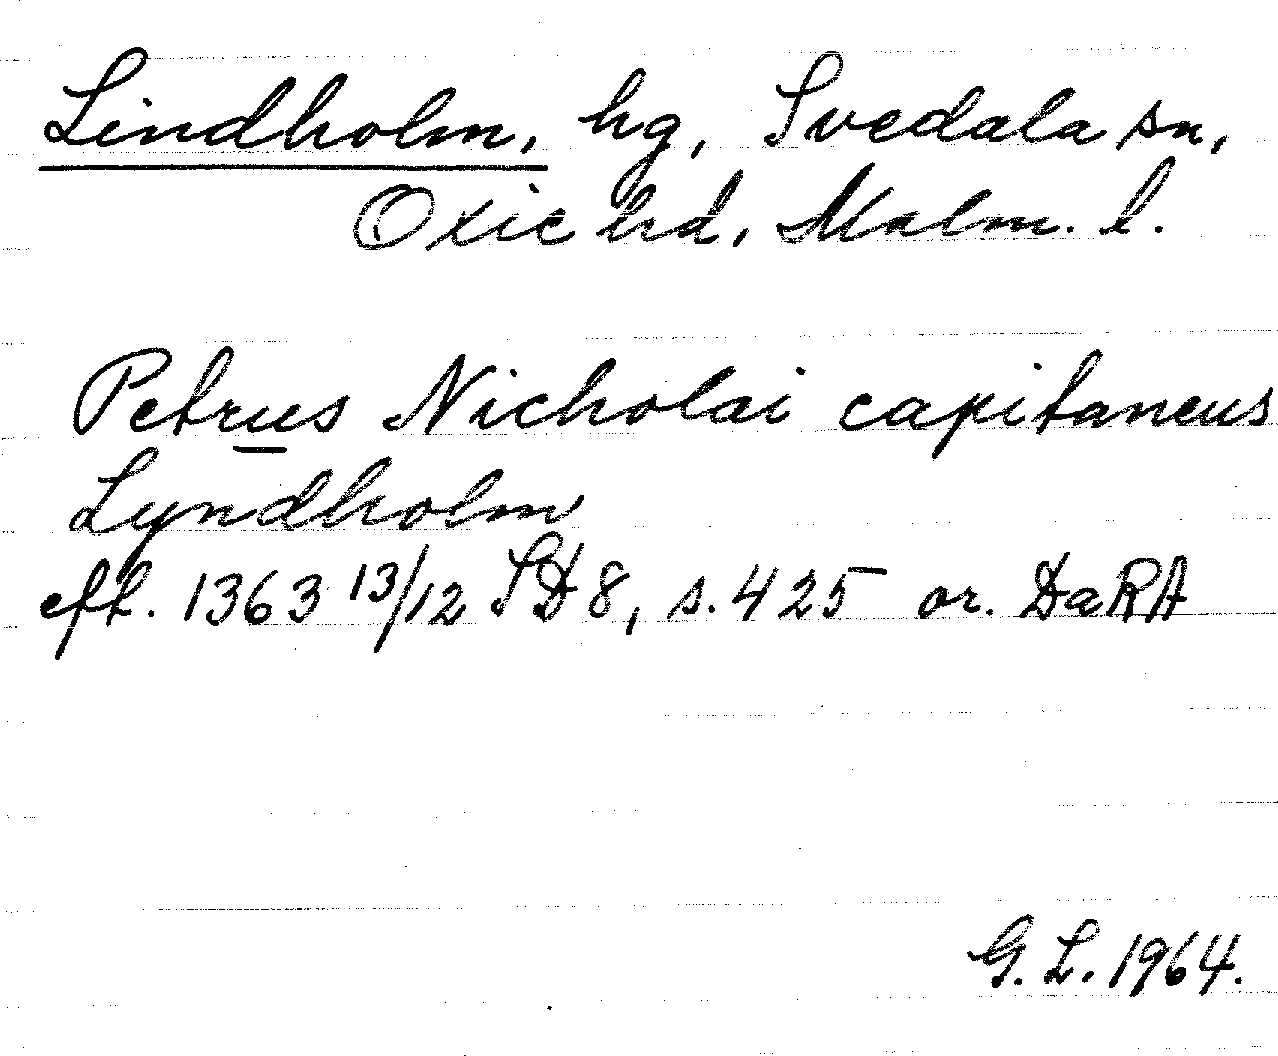 Lindholm, hg, Svedala sn,
Oxie hd, Malm. l.
Petrus Nicholai capitaneus
Lyndholm
eft. 1363 13/12 SD 8, s. 425 or. DaRA
G. L. 1964.